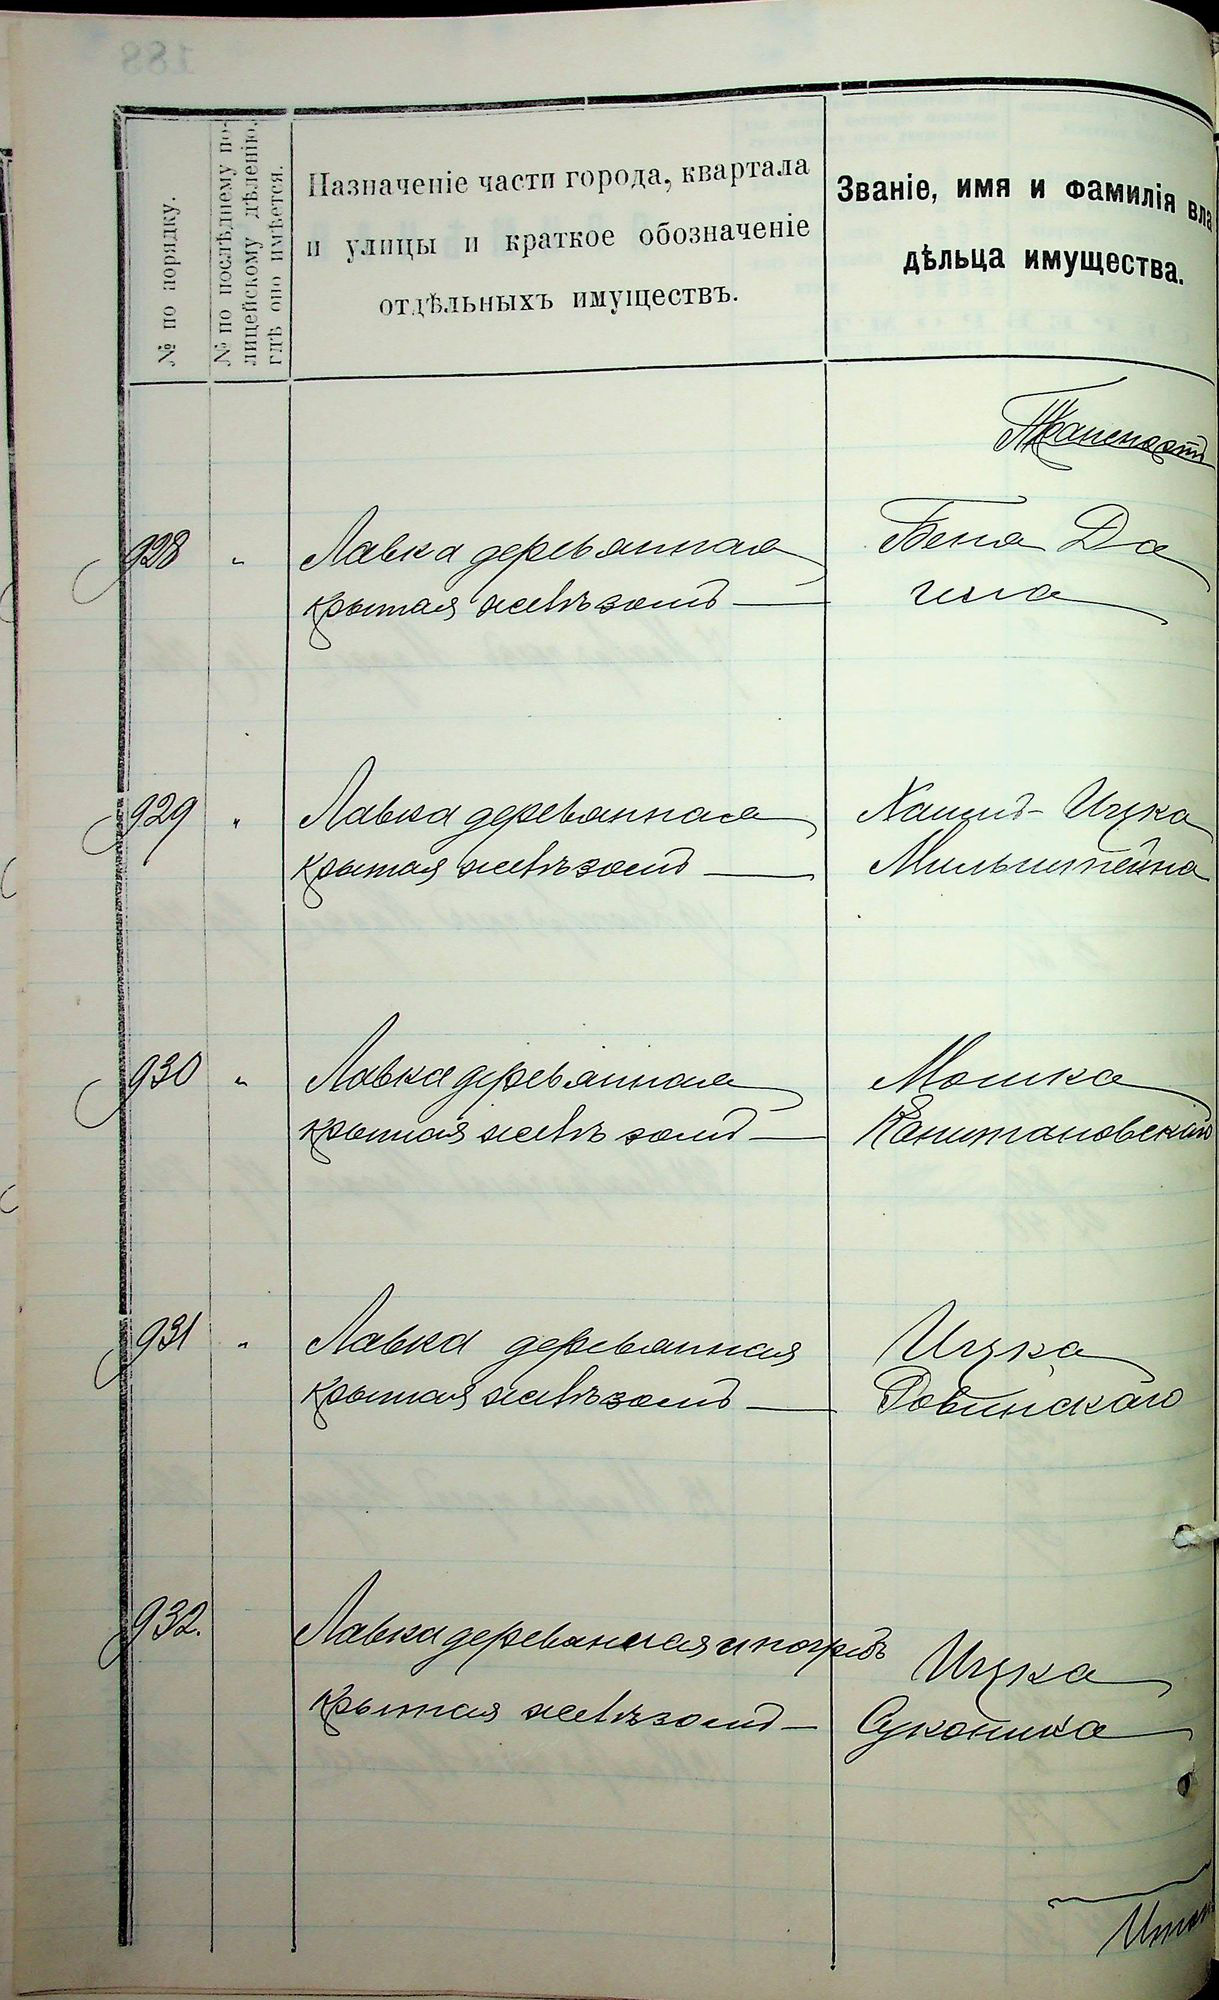 № по порядку.
№ по послѣднему по-
лицейскому дѣленію,
гдѣ оно имѣется.
Назначеніе части города, квартала
и улицы и краткое обозначеніе
отдѣльныхъ имуществъ.
Званіе, имя и фамилія вла
дѣльца имущества.
Транспортъ
928 " Лавка деревянная
крытая желѣзомъ —
Бена Да
гила
929 " Лавка деревянная
крытая желѣзомъ —
Хаимъ-Ицка
Мильштейна
930 " Лавка деревянная
крытая желѣзомъ —
Мошка
Капитановскаго
931 " Лавка деревянная
крытая желѣзомъ —
Ицка
Ровинскаго
932. Лавка деревянная и погребъ
крытая желѣзомъ —
Ицка
Суконика
Итого
188